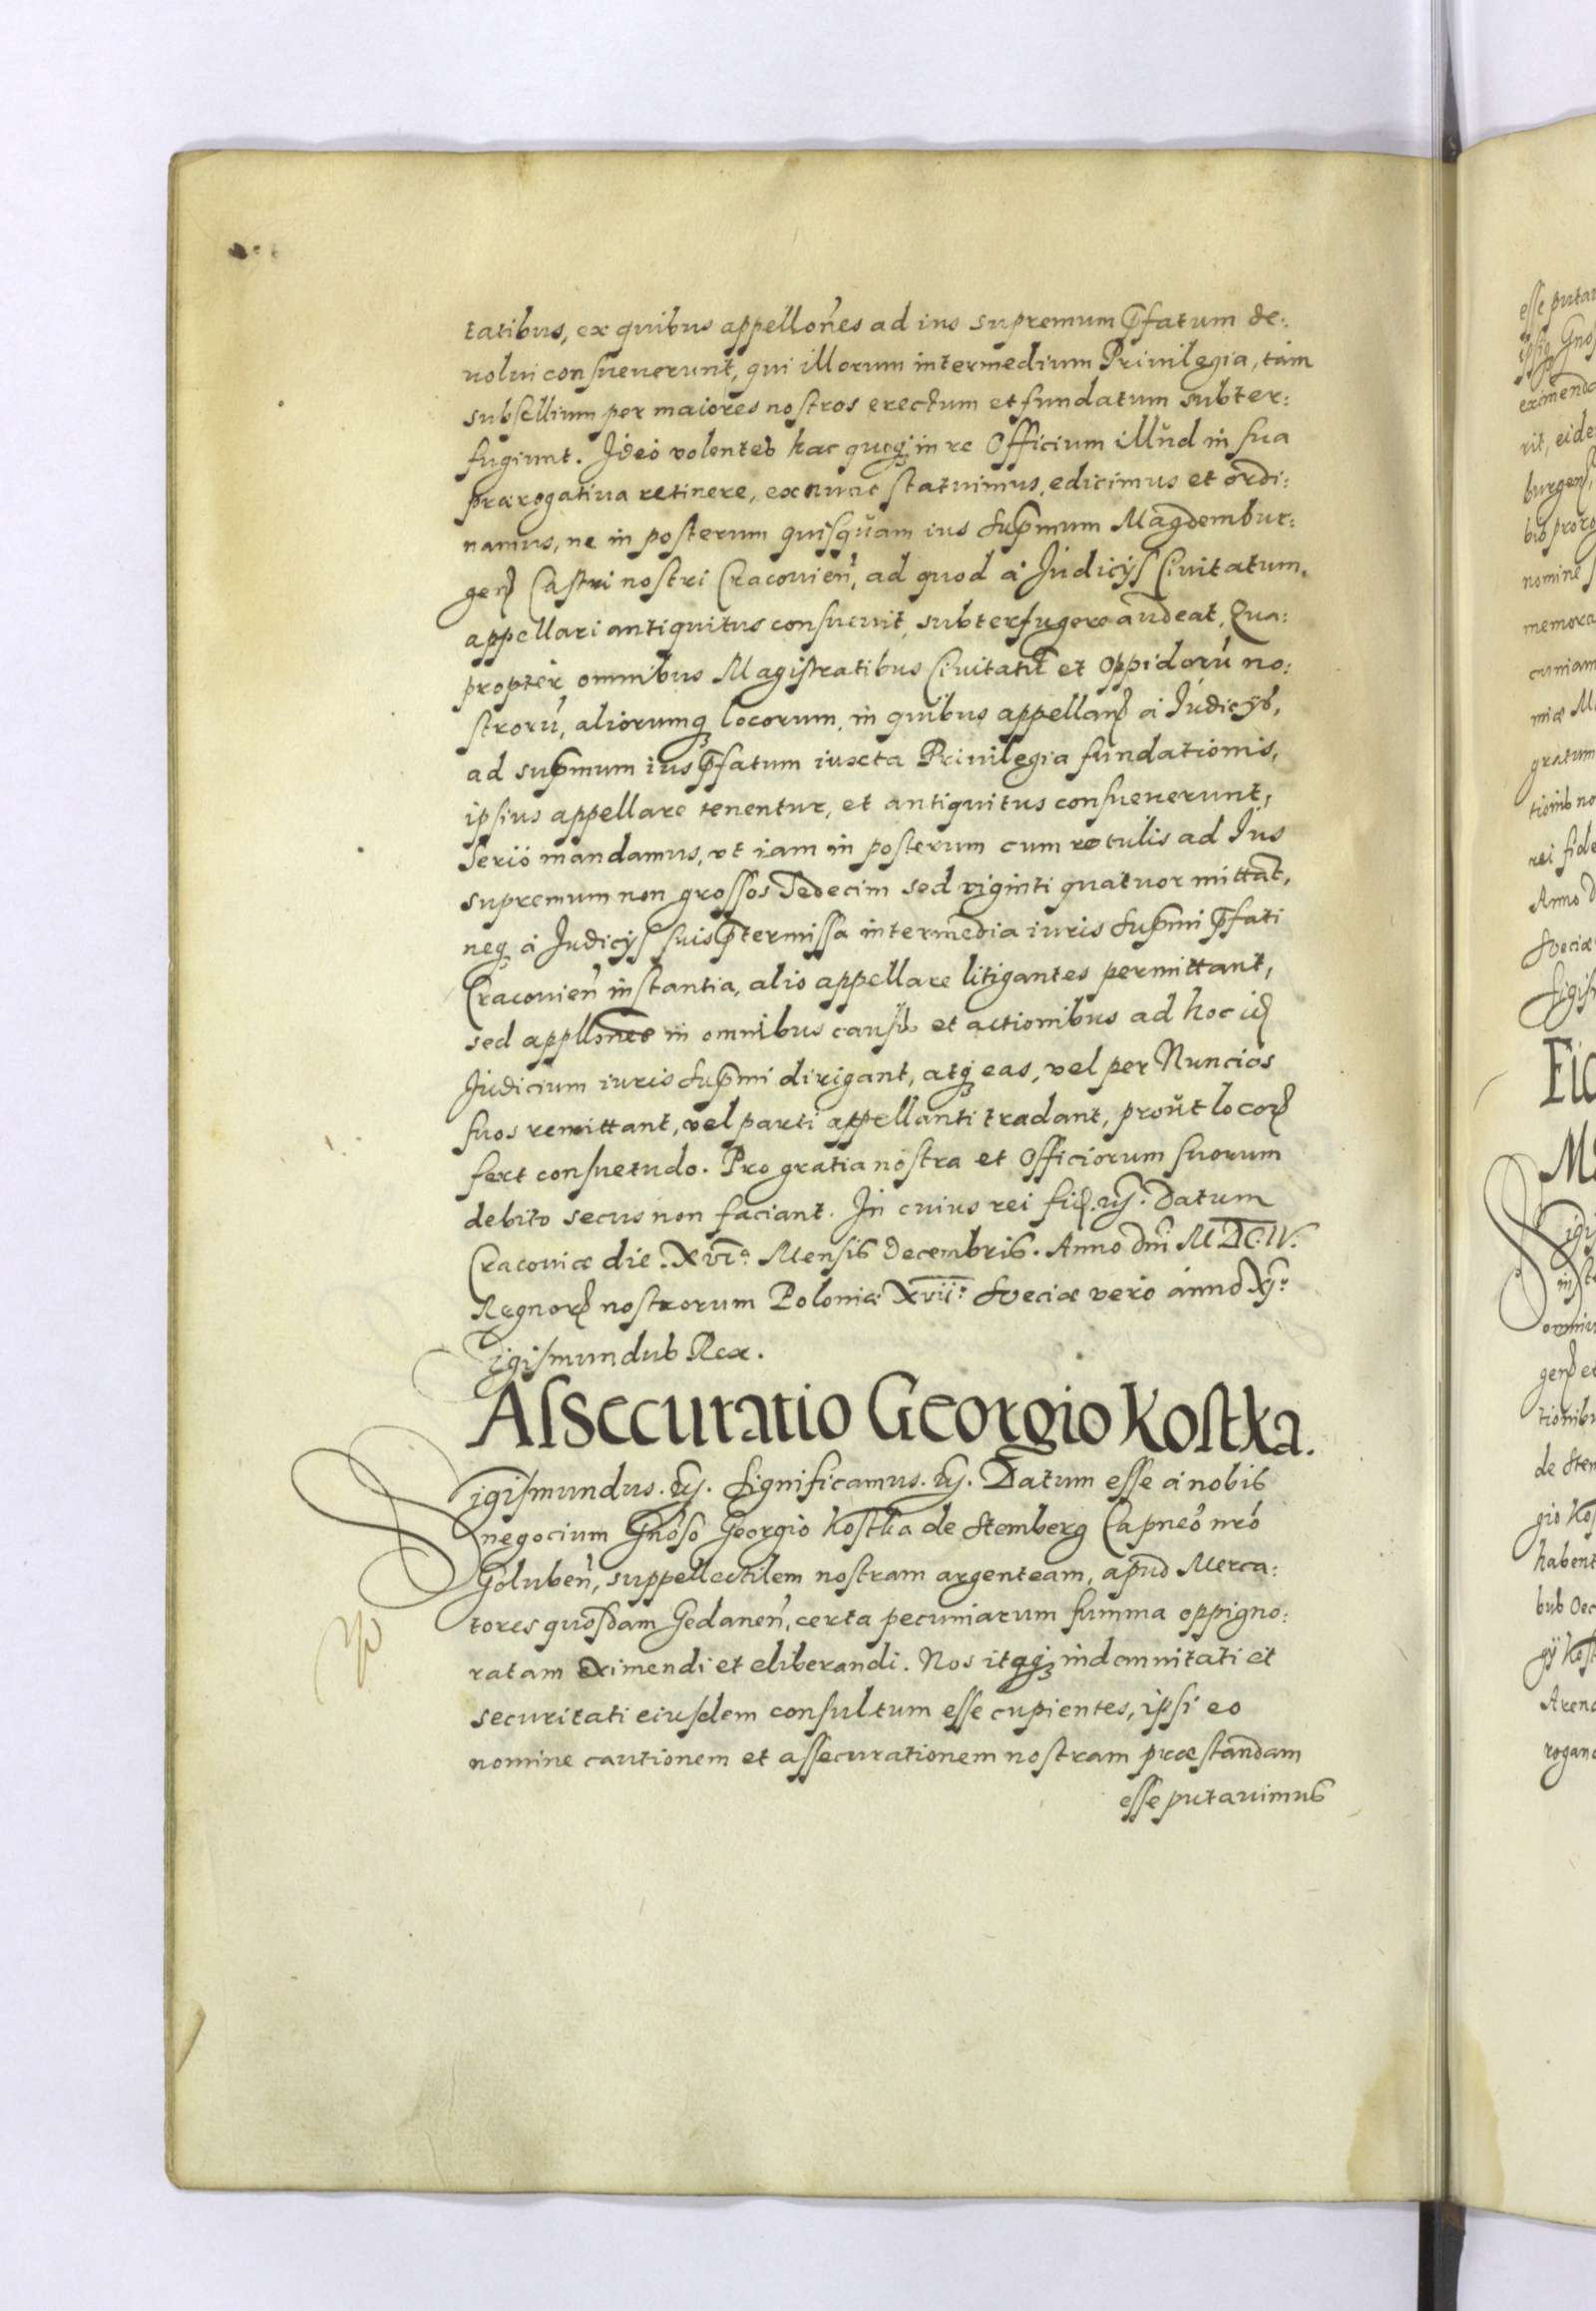 tatibus, ex quibus appelloñes ad ius supremum p̃fatum de:
uolui consueuerunt, qui illorum intermedium Priuilegia, tam
subsellium per maiores nostros erectum et fundatum subter:
fugiunt. Ideò volentes hac quoq₃ in re Officium illud in sua
prærogatiua retinere, ex nunc statuimus, edicimus et ordi:
namus, ne in posterum quisquam ius Sup̃mum Magdembur:
geñ Castri nostri Cracouieñ, ad quod à Iudicijs Ciuitatum,
appellari antiquitus consueuit, subterfugere audeat, Qua:
propter omnibus Magistratibus Ciuitatũ et Oppidorũ no:
strorũ, aliorumq₃ locorum, in quibus appellañ à Iudicijs,
ad sup̃mum ius p̃fatum iuxta Priuilegia fundationis,
ipsius appellare tenentur, et antiquitus consueuerunt,
Seriò mandamus, vt iam in posterum cum rotulis ad Ius
supremum non grossos Sedecim sed viginti quatuor mittãt,
neq₃ à Iudicijs suis p̃termissa intermedia iuris Sup̃mi p̃fati
Cracouieñ instantia, aliò appellare litigantes permittant,
sed appllõnes in omnibus causis et actionibus ad hoc iđ
Iudicium iuris Sup̃mi dirigant, atq₃ eas, vel per Nuncios
suos remittant, vel parti appellanti tradant, prout locoꝝ
fert consuetudo. Pro gratia nostra et Officiorum suorum
debito secus non faciant. In cuius rei fiđ. etc̃. Datum
Cracouiæ die. XVI.ᵃ Mensis Decembris. Anno Dñi M.DC.IV.
Regnoꝝ nostrorum Poloniæ XVII.° Sveciæ verò anno XI.°
Sigismundus Rex.
Assecuratio Georgio Kostka.
Sigismundus. etc̃. Significamus. etc̃. Datum esse à nobis
negocium Gñoso Georgio Kostka de Stemberg Capñeo nr̃o
Golubeñ, suppellectilem nostram argenteam, apud Merca:
tores quosdam Gedaneñ, certa pecuniarum summa oppigno:
ratam eximendi et eliberandi. Nos itaq₃ indemnitati et
securitati eiusdem consultum esse cupientes, ipsi eo
nomine cautionem et assecurationem nostram præstandam
esse putauimus